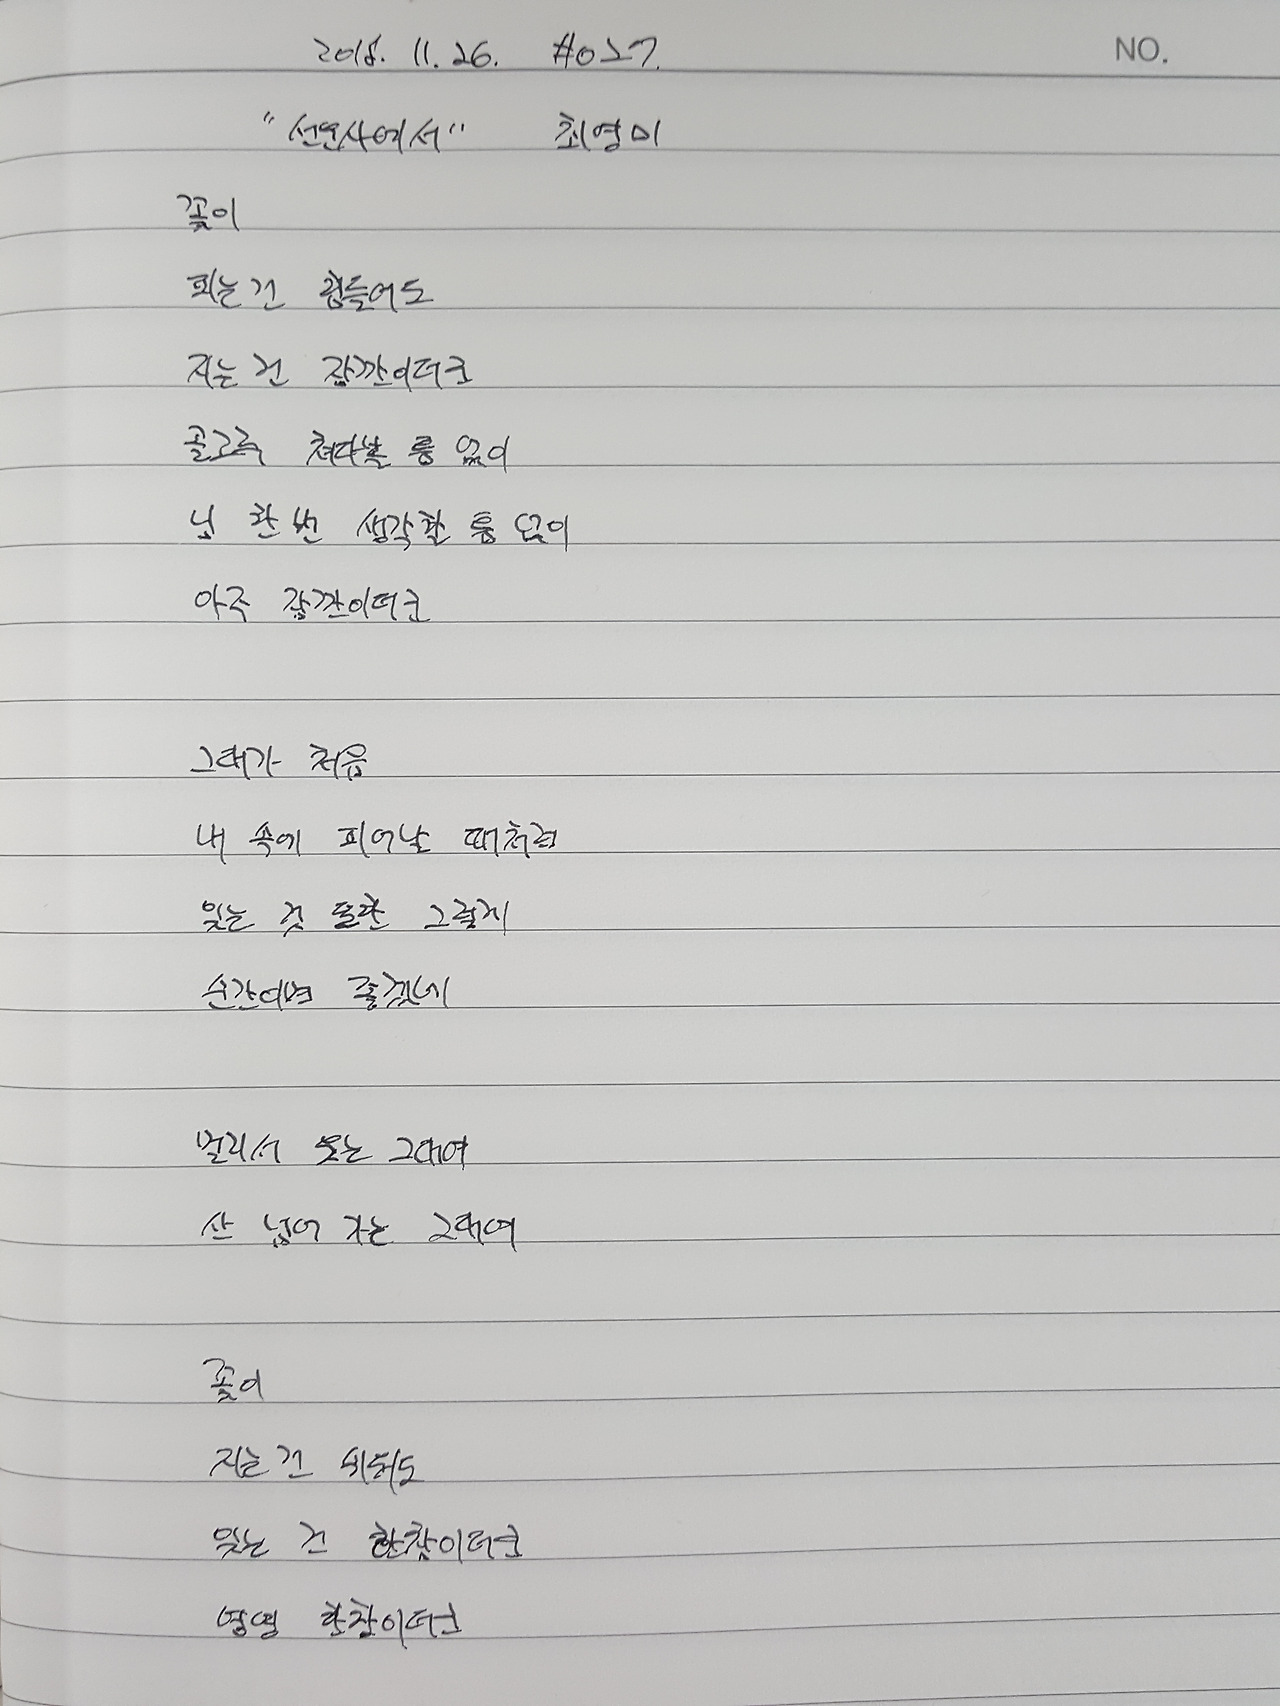 2018. 11. 26. #027.
NO.
"선운사에서" 최영미
꽃이
피는 건 힘들어도
지는 건 잠깐이더군
골고루 쳐다볼 틈 없이
님 한 번 생각할 틈 없이
아주 잠깐이더군
그대가 처음
내 속에 피어날 때처럼
잊는 것 또한 그렇게
순간이면 좋겠네
멀리서 웃는 그대여
산 넘어 가는 그대여
꽃이
지는 건 쉬워도
잊는 건 한참이더군
영영 한참이더군